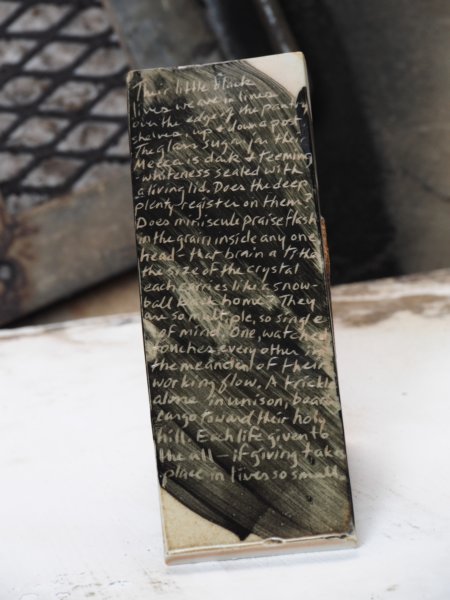 Their little black
lives weave in lines
over the edge of the pantry
shelves, up & down a post.
The glass sugar jar
Mecca is dark & teeming,
whiteness sealed with
a living lid. Does the deep
plenty register on them?
Does miniscule praise flash
in the grain inside any one
head - that brain a tithe
the size of the crystal
each carries like a snow-
ball back home? They
are so multiple, so single
of mind. One, watched,
touches every other in
the meander of their
working flow. A trickle
alone in unison, bears
cargo toward their holy
hill. Each life given to
the all - if giving takes
place in lives so small.